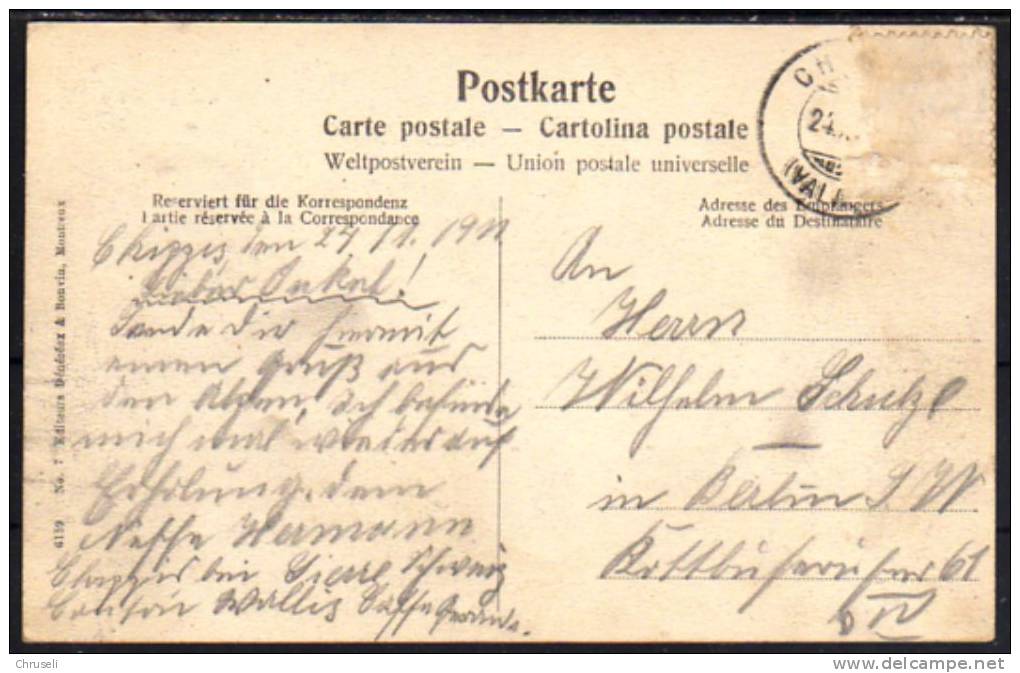 Postkarte
Carte postale — Cartolina postale
Weltpostverein — Union postale universelle
Reserviert für die Korrespondenz
Partie réservée à la Correspondance
Adresse des Empfängers
Adresse du Destinataire
CH
24.
(VAL
Chippis den 24 11. 19
Lieber Onkel!
Sende dir hiermit
einen Gruß aus
den Alpen, Ich befinde
mich mal wieder auf
Erholung. dein
Neffe Hermann
Chippis bei Sierre Schweiz
Canton Wallis
An
Herrn
Wilhelm Schulze
in Berlin S W
Kottbuserufer 61
6159 No. 7 Editeurs Dénéréaz & Bonvin, Montreux
Chruseli
delcampe.net